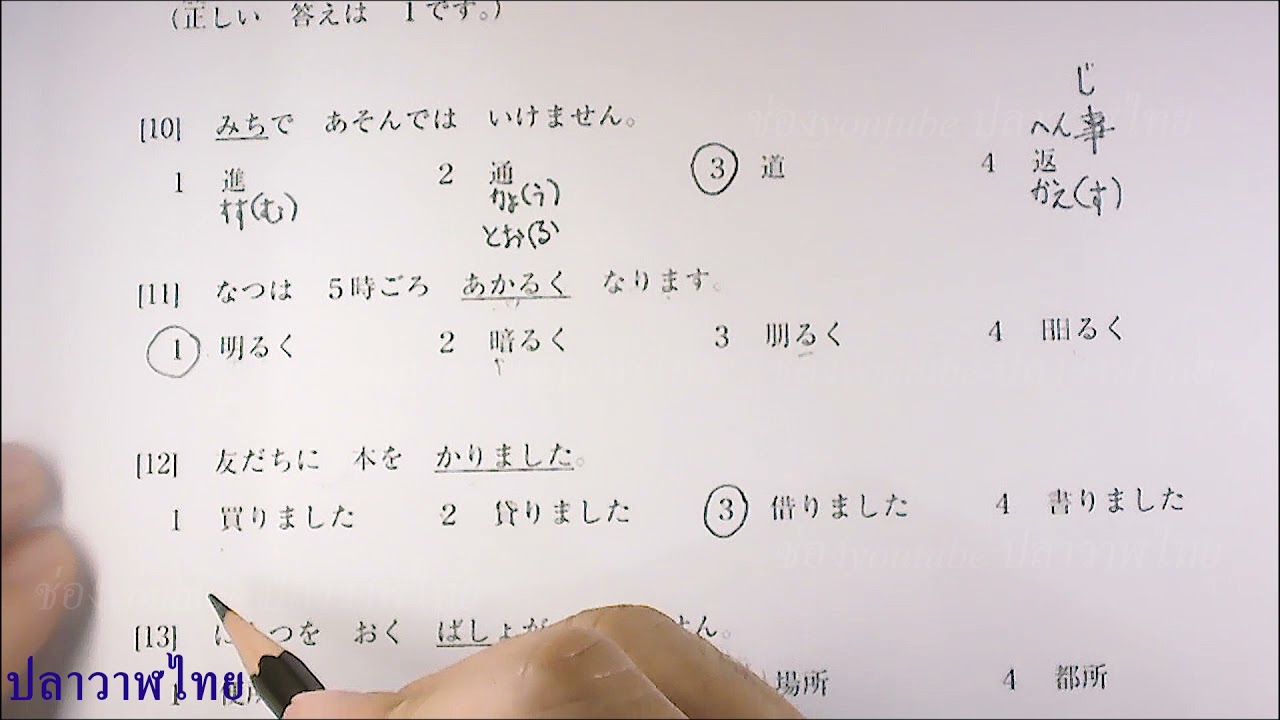 （正しい 答えは 1です。）
じ
[10] みちで あそんでは いけません。
へん事
1 進 2 通 3 道 4 返
すす(む) かよ(う) かえ(す)
とお(る)
[11] なつは 5時ごろ あかるく なります。
1 明るく 2 暗るく 3 朋るく 4 るく
[12] 友だちに 本を かりました。
1 買りました 2 貸りました 3 借りました 4 書りました
[13] つを おく ばしょが せん。
1 場所 4 都所
ปลาวาฬไทย
ช่องyoutube ปลาวาฬไทย